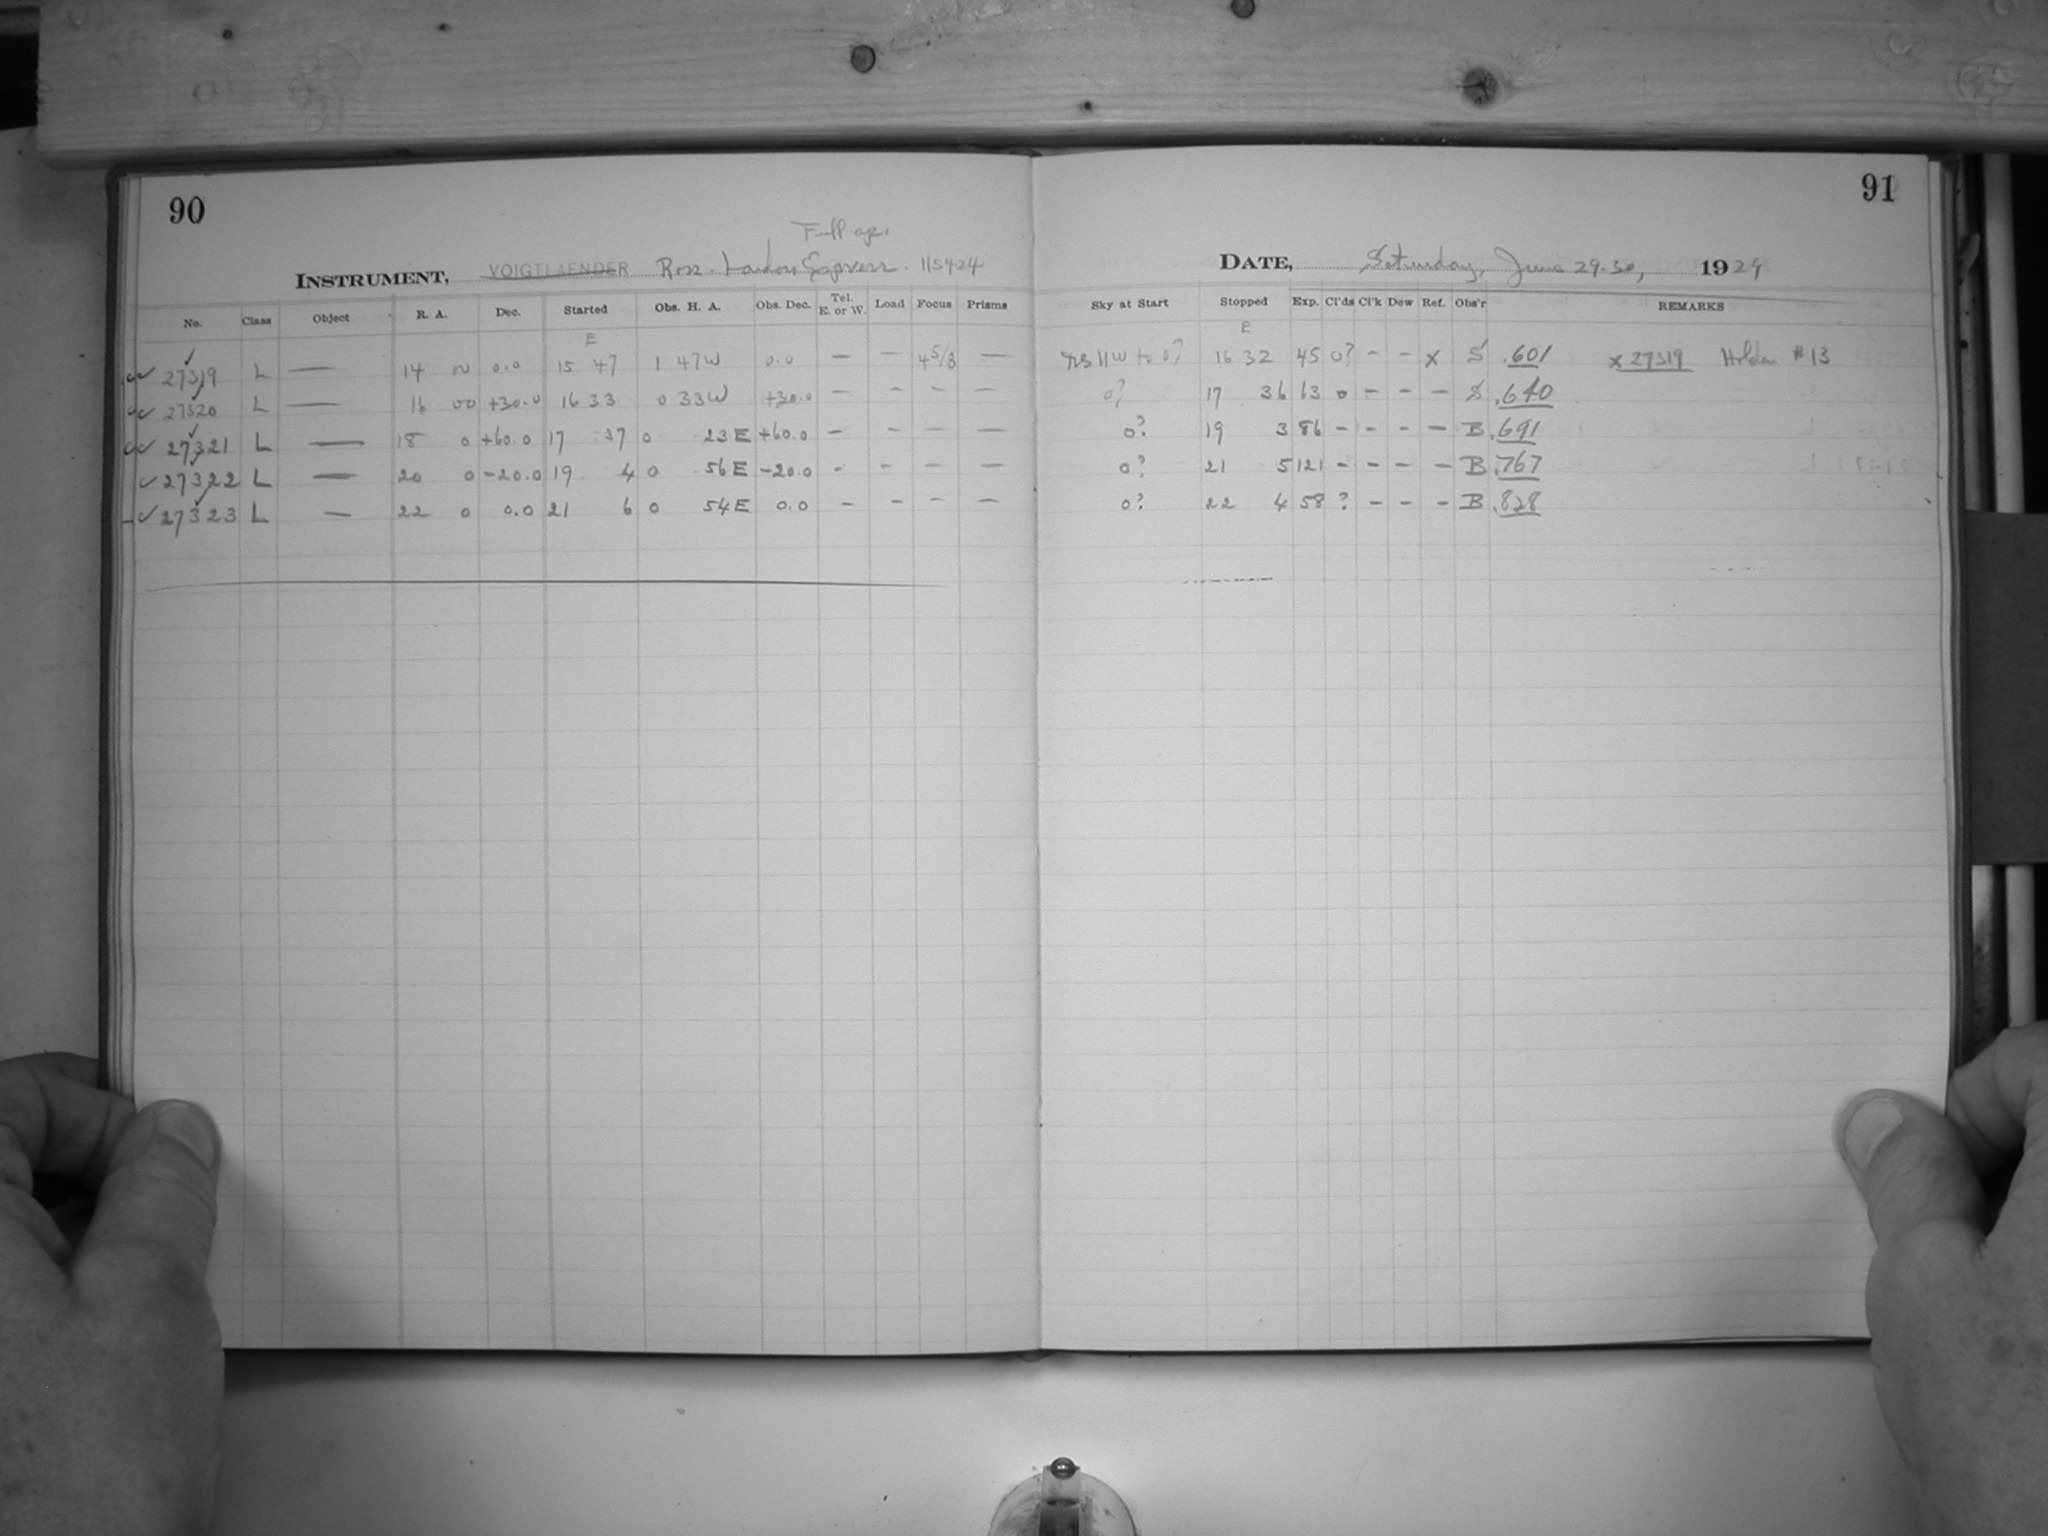 90
Full ap.
INSTRUMENT, VOIGTLAENDER Ross London Express. 115424
No. Class Object R. A. Dec. Started Obs. H. A. Obs. Dec. Tel. E. or W. Load Focus Prisms
E
27319 L — 14 00 0.0 15 47 1 47W 0.0 — — 4 5/8 —
27320 L — 16 00 +30.0 16 33 0 33W +30.0 - - - -
27321 L — 18 0 +60.0 17 37 0 23 E +60.0 - - - -
27322 L — 20 0 -20.0 19 4 0 56 E -20.0 - - - -
27323 L — 22 0 0.0 21 6 0 54 E 0.0 - - - -
91
DATE, Saturday, June 29-30, 1929
Sky at Start Stopped Exp. Cl'ds Cl'k Dew Ref. Obs'r REMARKS
E
to 0? 16 32 45 0? - - x S .601 x 27319 Holder #13
0? 17 36 63 0 - - - S .640
0? 19 3 86 - - - - B .691
0? 21 5 121 - - - - B .767
0? 22 4 58 ? - - - B .828